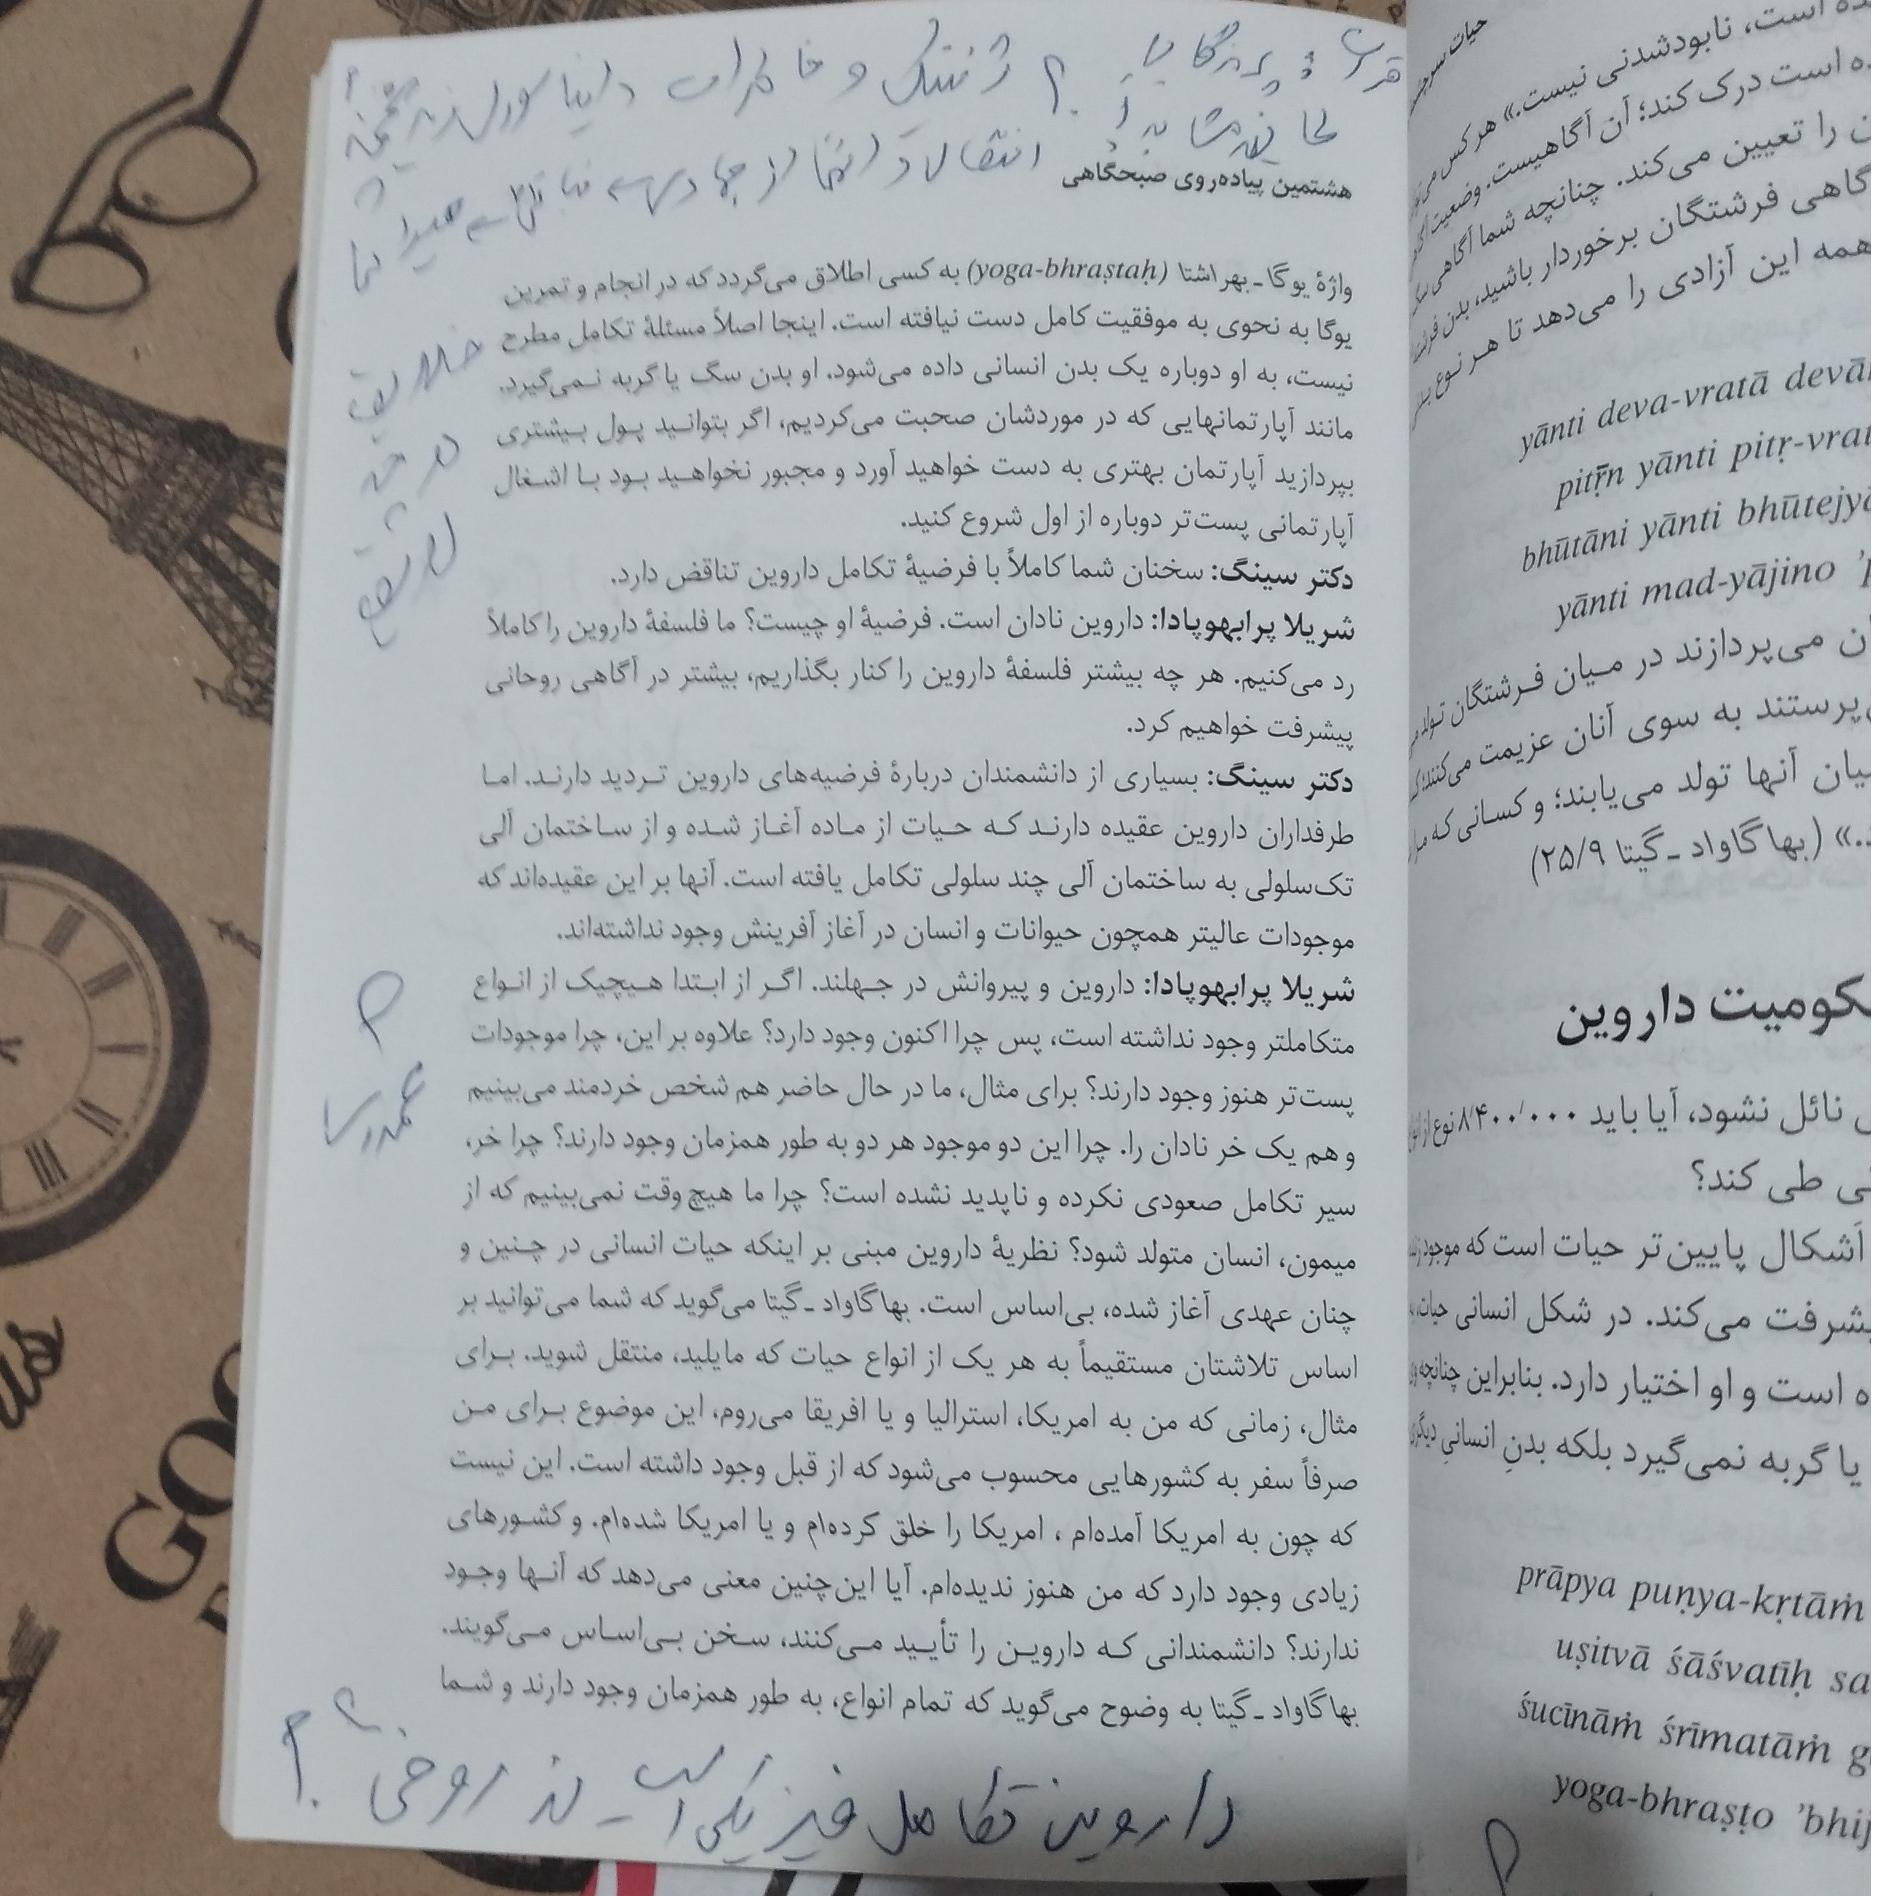 هشتمین پیاده‌روی صبحگاهی
واژهٔ یوگا ـ بهراشتا (yoga-bhraṣṭaḥ) به کسی اطلاق می‌گردد که در انجام و تمرین
یوگا به نحوی به موفقیت کامل دست نیافته است. اینجا اصلاً مسئلهٔ تکامل مطرح
نیست، به او دوباره یک بدن انسانی داده می‌شود. او بدن سگ یا گربه نمی‌گیرد.
مانند آپارتمانهایی که در موردشان صحبت می‌کردیم، اگر بتوانید پول بیشتری
بپردازید آپارتمان بهتری به دست خواهید آورد و مجبور نخواهید بود با اشغال
آپارتمانی پست‌تر دوباره از اول شروع کنید.
دکتر سینگ: سخنان شما کاملاً با فرضیهٔ تکامل داروین تناقض دارد.
شریلا پرابهوپادا: داروین نادان است. فرضیهٔ او چیست؟ ما فلسفهٔ داروین را کاملاً
رد می‌کنیم. هر چه بیشتر فلسفهٔ داروین را کنار بگذاریم، بیشتر در آگاهی روحانی
پیشرفت خواهیم کرد.
دکتر سینگ: بسیاری از دانشمندان دربارهٔ فرضیه‌های داروین تردید دارند. اما
طرفداران داروین عقیده دارند که حیات از ماده آغاز شده و از ساختمان آلی
تک‌سلولی به ساختمان آلی چند سلولی تکامل یافته است. آنها بر این عقیده‌اند که
موجودات عالیتر همچون حیوانات و انسان در آغاز آفرینش وجود نداشته‌اند.
شریلا پرابهوپادا: داروین و پیروانش در جهلند. اگر از ابتدا هیچیک از انواع
متکاملتر وجود نداشته است، پس چرا اکنون وجود دارد؟ علاوه بر این، چرا موجودات
پست‌تر هنوز وجود دارند؟ برای مثال، ما در حال حاضر هم شخص خردمند می‌بینیم
و هم یک خر نادان را. چرا این دو موجود هر دو به طور همزمان وجود دارند؟ چرا خر،
سیر تکامل صعودی نکرده و ناپدید نشده است؟ چرا ما هیچ وقت نمی‌بینیم که از
میمون، انسان متولد شود؟ نظریهٔ داروین مبنی بر اینکه حیات انسانی در چنین و
چنان عهدی آغاز شده، بی‌اساس است. بهاگاواد ـ گیتا می‌گوید که شما می‌توانید بر
اساس تلاشتان مستقیماً به هر یک از انواع حیات که مایلید، منتقل شوید. برای
مثال، زمانی که من به امریکا، استرالیا و یا افریقا می‌روم، این موضوع برای من
صرفاً سفر به کشورهایی محسوب می‌شود که از قبل وجود داشته است. این نیست
که چون به امریکا آمده‌ام ، امریکا را خلق کرده‌ام و یا امریکا شده‌ام. و کشورهای
زیادی وجود دارد که من هنوز ندیده‌ام. آیا این‌چنین معنی می‌دهد که آنها وجود
ندارند؟ دانشمندانی که داروین را تأیید می‌کنند، سخن بی‌اساس می‌گویند.
بهاگاواد ـ گیتا به وضوح می‌گوید که تمام انواع، به طور همزمان وجود دارند و شما
داروین تکامل فیزیکی است نه روحی؟
است، نابودشدنی نیست.» هر کس می
ه است درک کند؛ آن آگاهیست. وضعیت
را تعیین می‌کند. چنانچه شما آگاهی
گاهی فرشتگان برخوردار باشید، بدن
همه این آزادی را می‌دهد تا هر نوع
yānti deva-vratā
pitṝn yānti
bhūtāni yānti
yānti mad-yājino
می‌پردازند در میان فرشتگان تولد
پرستند به سوی آنان عزیمت می‌کنند؛
میان آنها تولد می‌یابند؛ و کسانی که
(بهاگاواد ـ گیتا ۲۵/۹)
داروین
نائل نشود، آیا باید ۸/۴۰۰/۰۰۰ نوع از
طی کند؟
اَشکال پایین‌تر حیات است که موجود
پیشرفت می‌کند. در شکل انسانی حیات،
است و او اختیار دارد. بنابراین چنانچه
یا گربه نمی‌گیرد بلکه بدنِ انسانیِ دیگری
prāpya puṇya-kṛtāṁ
uṣitvā śāśvatīḥ
śucīnāṁ śrīmatāṁ
yoga-bhraṣṭo